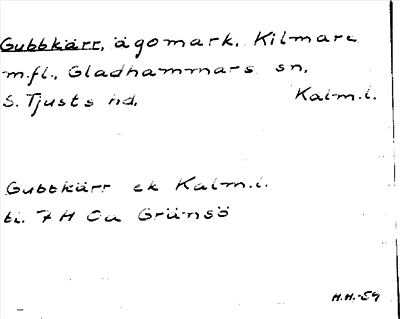 Gubbkärr, ägomark, Kilmare
m.fl., Gladhammars sn,
S. Tjusts hd, Kalm.l.
Gubbkärr ek Kalm.l.
bl. 7H Oa Grünsö
H.H.-59